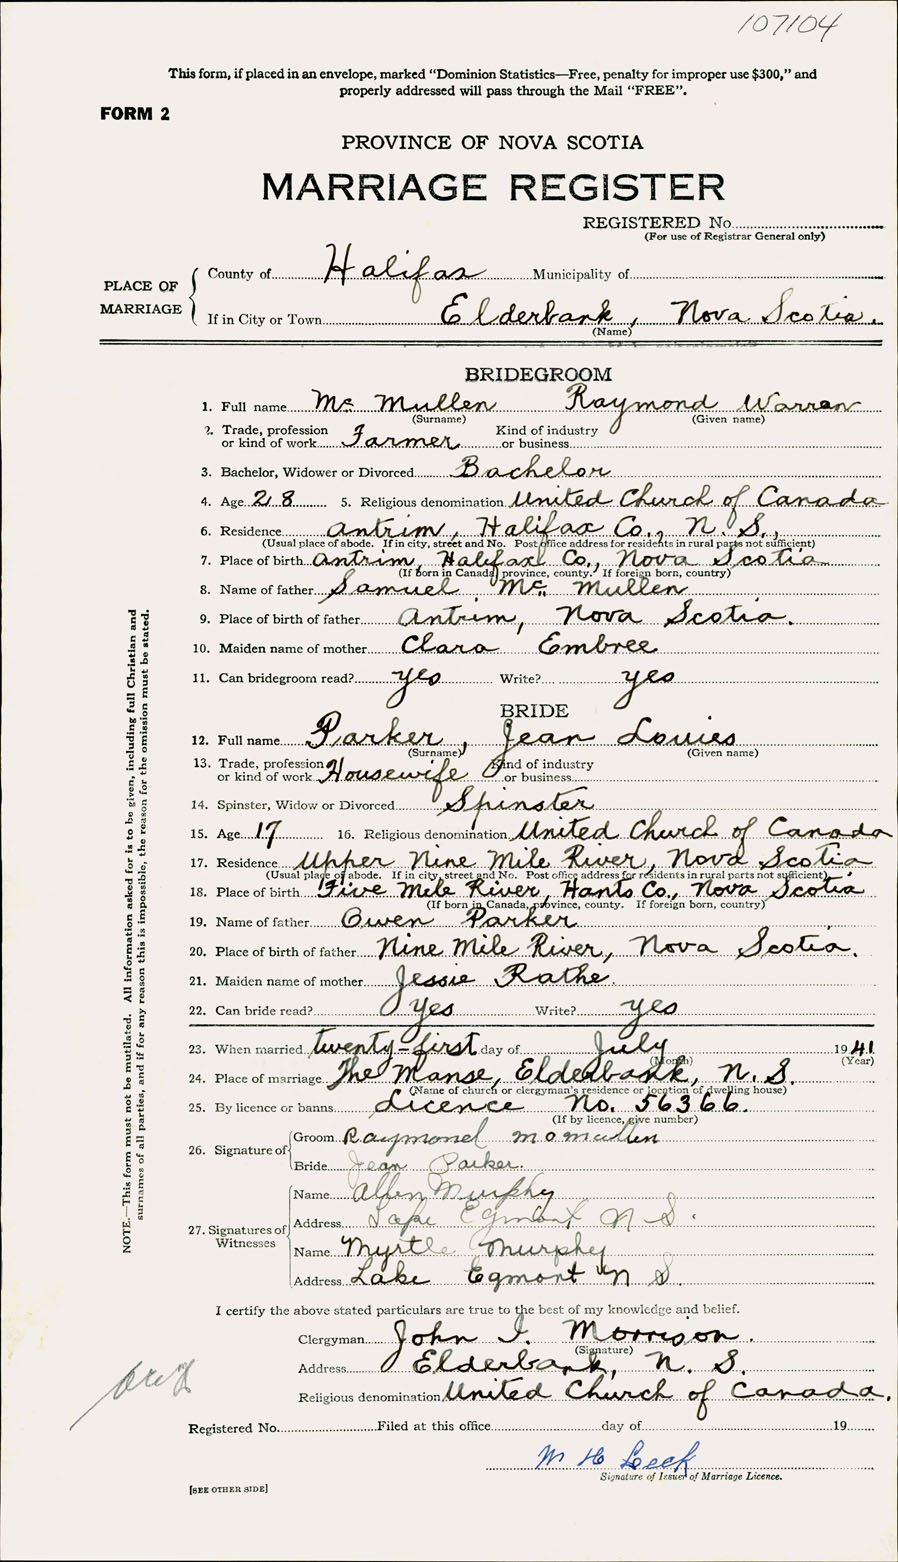 107104
This form, if placed in an envelope, marked “Dominion Statistics—Free, penalty for improper use $300,” and
properly addressed will pass through the Mail “FREE”.
FORM 2
PROVINCE OF NOVA SCOTIA
MARRIAGE REGISTER
REGISTERED No.
(For use of Registrar General only)
PLACE OF MARRIAGE
County of Halifax Municipality of
If in City or Town Elderbank, Nova Scotia.
(Name)
BRIDEGROOM
1. Full name Mc Mullen Raymond Warren
(Surname) (Given name)
2. Trade, profession Kind of industry
or kind of work Farmer or business
3. Bachelor, Widower or Divorced Bachelor
4. Age 28 5. Religious denomination United Church of Canada
6. Residence Antrim, Halifax Co., N. S.,
(Usual place of abode. If in city, street and No. Post office address for residents in rural parts not sufficient)
7. Place of birth Antrim, Halifax Co., Nova Scotia
(If born in Canada, province, county. If foreign born, country)
8. Name of father Samuel Mc. Mullen
9. Place of birth of father Antrim, Nova Scotia.
10. Maiden name of mother Clara Embree
11. Can bridegroom read? yes Write? yes
BRIDE
12. Full name Parker, Jean Louies
(Surname) (Given name)
13. Trade, profession Kind of industry
or kind of work Housewife or business
14. Spinster, Widow or Divorced Spinster
15. Age 17 16. Religious denomination United Church of Canada
17. Residence Upper Nine Mile River, Nova Scotia
(Usual place of abode. If in city, street and No. Post office address for residents in rural parts not sufficient)
18. Place of birth Five Mile River, Hants Co., Nova Scotia
(If born in Canada, province, county. If foreign born, country)
19. Name of father Owen Parker
20. Place of birth of father Nine Mile River, Nova Scotia.
21. Maiden name of mother Jessie Rathe.
22. Can bride read? Yes Write? yes
23. When married twenty-first day of July 1941
(Month) (Year)
24. Place of marriage The Manse, Elderbank, N. S.
(Name of church or clergyman's residence or location of dwelling house)
25. By licence or banns Licence No. 56366.
(If by licence, give number)
26. Signature of
Groom Raymond McMullen
Bride Jean Parker.
27. Signatures of Witnesses
Name Murphy
Address Egmont N S.
Name Myrtle Murphy
Address Lake Egmont N S.
I certify the above stated particulars are true to the best of my knowledge and belief.
Clergyman John I. Morrison.
(Signature)
Address Elderbank, N. S.
Religious denomination United Church of Canada.
Registered No. Filed at this office day of 19
M H Leck
Signature of Issuer of Marriage Licence.
[SEE OTHER SIDE]
NOTE.—This form must not be mutilated. All information asked for is to be given, including full Christian and
surnames of all parties, and if for any reason this is impossible, the reason for the omission must be stated.